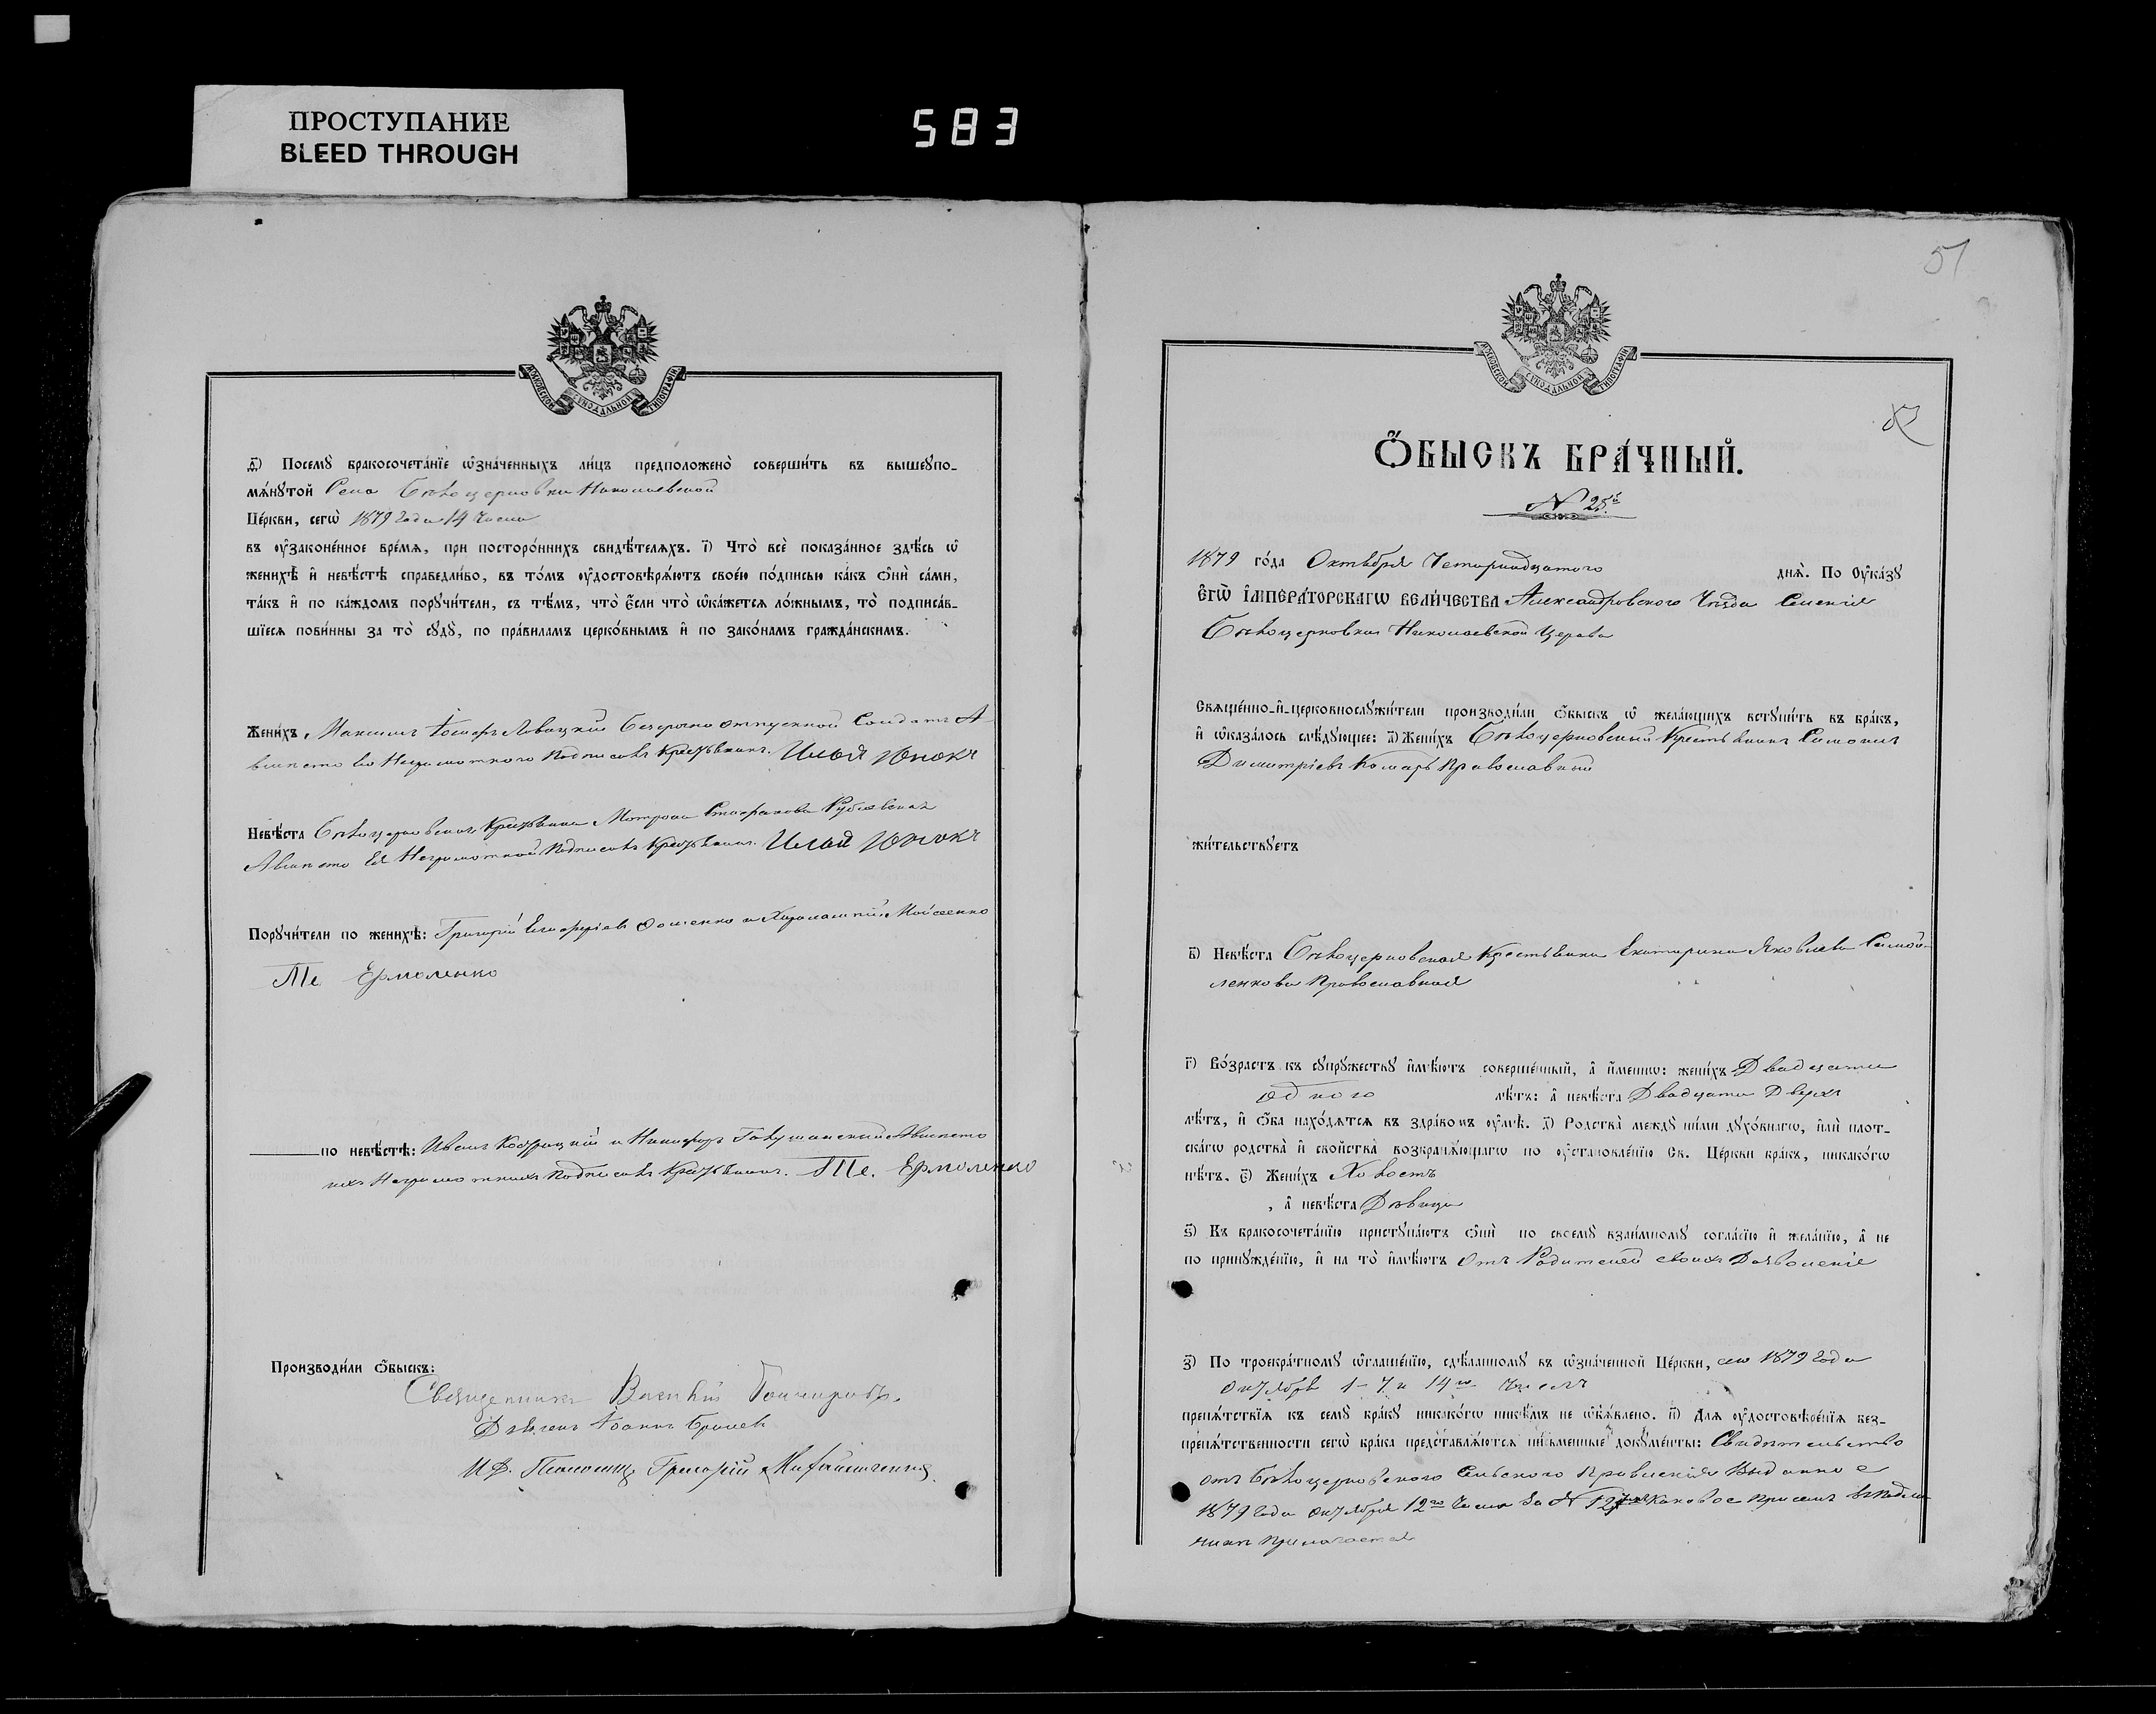 ПРОСТУПАНИЕ
BLEED THROUGH
583
д҃) Посемꙋ̀ бракосочета́нїе ѡ҆зна́ченныхъ ли́цъ предположено̀ соверши́ть въ вышеꙋпо-
мѧ́нꙋтой Села Бѣлоцерковки Николаевской
Це́ркви, сегѡ̀ 1879 года 14 Числа
въ ᲂу҆законе́нное вре́мѧ, при посторо́ннихъ свидѣ́телѧхъ. і҃) Что̀ всѐ показа́нное здѣ́сь ѡ҆
женихѣ̀ и҆ невѣ́стѣ справедли́во, въ то́мъ ᲂу҆достовѣрѧ́ютъ свое́ю по́дписью ка́къ ѻ҆нѝ са́ми,
та́къ и҆ по ка́ждомъ порꙋчи́тели, съ тѣ́мъ, что̀ є҆́сли что̀ ѡ҆ка́жетсѧ ло́жнымъ, то̀ подписа́в-
шїесѧ пови́нны за то̀ сꙋдꙋ̀, по пра́виламъ церко́внымъ и҆ по зако́намъ гражда́нскимъ.
Жени́хъ Максимъ Левицкій безсрочно отпускной Солдатъ А
вместо Его Неграмотного Подписалъ Крестьянинъ. Илья Юнокъ
Невѣ́ста Бѣлоцерковская Крестьянка Мотрона Стефанова Рублевская
А вместо Ея Неграмотной Подписалъ Крестьянин. Илья Юнокъ
Порꙋчи́тели по женихѣ̀: Григорій и Харлампій Мойсеенко
Те Ермоленко
по невѣ́стѣ: Иванъ и Никифоръ А вместо
ихъ Неграмотныхъ Подписалъ Крестьянинъ. Те. Ермоленко
Производи́ли ѻ҆́быскъ:
Священникъ Василій
Дьяконъ Іоаннъ
И. д. Псаломщ. Григорій
51
ѺБЫСКЪ БРА́ЧНЫЙ.
N 25й
1879 го́да Октября Четырнадцатого днѧ̀. По Оу҆ка́зꙋ
Є҆ГѠ̀ І҆МПЕРА́ТОРСКАГѠ ВЕЛИ́ЧЕСТВА Александровского Уѣзда Селенія
Бѣлоцерковки Николаевской Церкви
Свѧще́нно-и҆-церковнослꙋжи́тели производи́ли ѻ҆́быскъ ѡ҆ жела́ющихъ встꙋпи́ть въ бра́къ,
и҆ ѡ҆каза́лось слѣ́дꙋющее: а҃) Жени́хъ Бѣлоцерковскій Крестьянинъ Симонъ
Димитріевъ Комаръ Православный
жи́тельствꙋетъ
в҃) Невѣ́ста Бѣлоцерковская Крестьянка Екатерина Яковлева Самой-
ленкова Православная
г҃) Во́зрастъ къ сꙋпрꙋ́жествꙋ и҆мѣ́ютъ соверше́нный, а҆ и҆́меннѡ: жени́хъ Двадцати
одного лѣ́тъ: а҆ невѣ́ста Двадцати Двухъ
лѣ́тъ, и҆ ѻ҆́ба нахо́дѧтсѧ въ здра́вомъ ᲂу҆мѣ̀. д҃) Родства̀ междꙋ̀ ни́ми дꙋхо́внагѡ, и҆лѝ плот-
ска́гѡ родства̀ и҆ сво́йства̀ возбранѧ́ющагѡ по ᲂу҆становле́нїю Св. Це́ркви бра́къ, никако́гѡ
нѣ́тъ. є҃) Жени́хъ Холостъ
, а҆ невѣ́ста Дѣвица
ѕ҃) Къ бракосочета́нїю пристꙋпа́ютъ ѻ҆нѝ по своемꙋ̀ взаи́мномꙋ согла́сїю и҆ жела́нїю, а҆ не
по принꙋжде́нїю, и҆ на то̀ и҆мѣ́ютъ отъ Родителей своихъ Дозволеніе
з҃) По троекра́тномꙋ ѡ҆глаше́нїю, сдѣ́ланномꙋ въ ѡ҆зна́ченной Це́ркви, сего 1879 года
октября 1- 7 и 14го числъ
препѧ́тствїѧ къ семꙋ̀ бра́кꙋ никако́гѡ никѣ́мъ не ѡ҆б̾ѧ́влено. и҃) Длѧ ᲂу҆достовѣре́нїѧ без-
препѧ́тственности сегѡ̀ бра́ка представлѧ́ютсѧ пи́сьменные докꙋме́нты: Свидетельство
отъ Бѣлоцерковского Сельского Правленія Выданное
1879 года октября 12го Числа За N Каковое при семъ въ подлин
никѣ прилагается